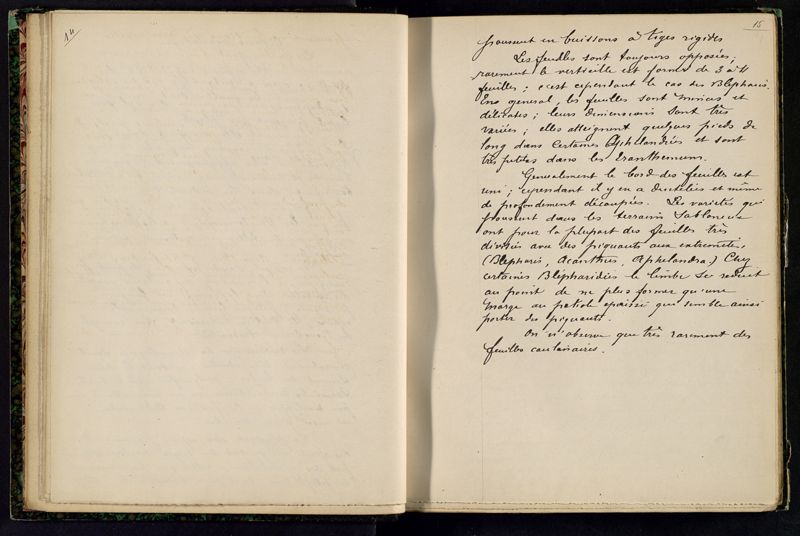 14
15
poussent en buissons à tiges rigides
Les feuilles sont toujours opposées;
rarement le verticille est formé de 3 à 4
feuilles; c'est cependant le cas des Blepharis.
En general, les feuilles sont minces et
délicates; leurs dimensions sont très
variées; elles atteignent quelques pieds de
long dans certaines Aphelandrés et sont
très petites dans les Eranthemum.
Generalement le bord des feuilles est
uni; cependant il y en a dentelées et même
de profondement découpées. Les varietés qui
poussent dans les terrains sabloneux
ont pour la plupart des feuilles très
divisés avec des piquants aux extremités,
(Blepharis, Acanthus, Aphelandra.) Chez
certaines Blepharidiés le limbe se reduit
au point de ne plus former qu'une
marge au petiole épaissi qui semble ainsi
porter des piquants.
On n'observe que très rarement des
feuilles caulinaires.